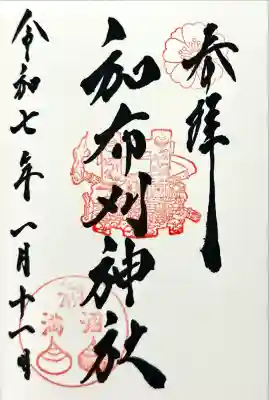 奉拝
和布刈神社
令和七年八月十一日